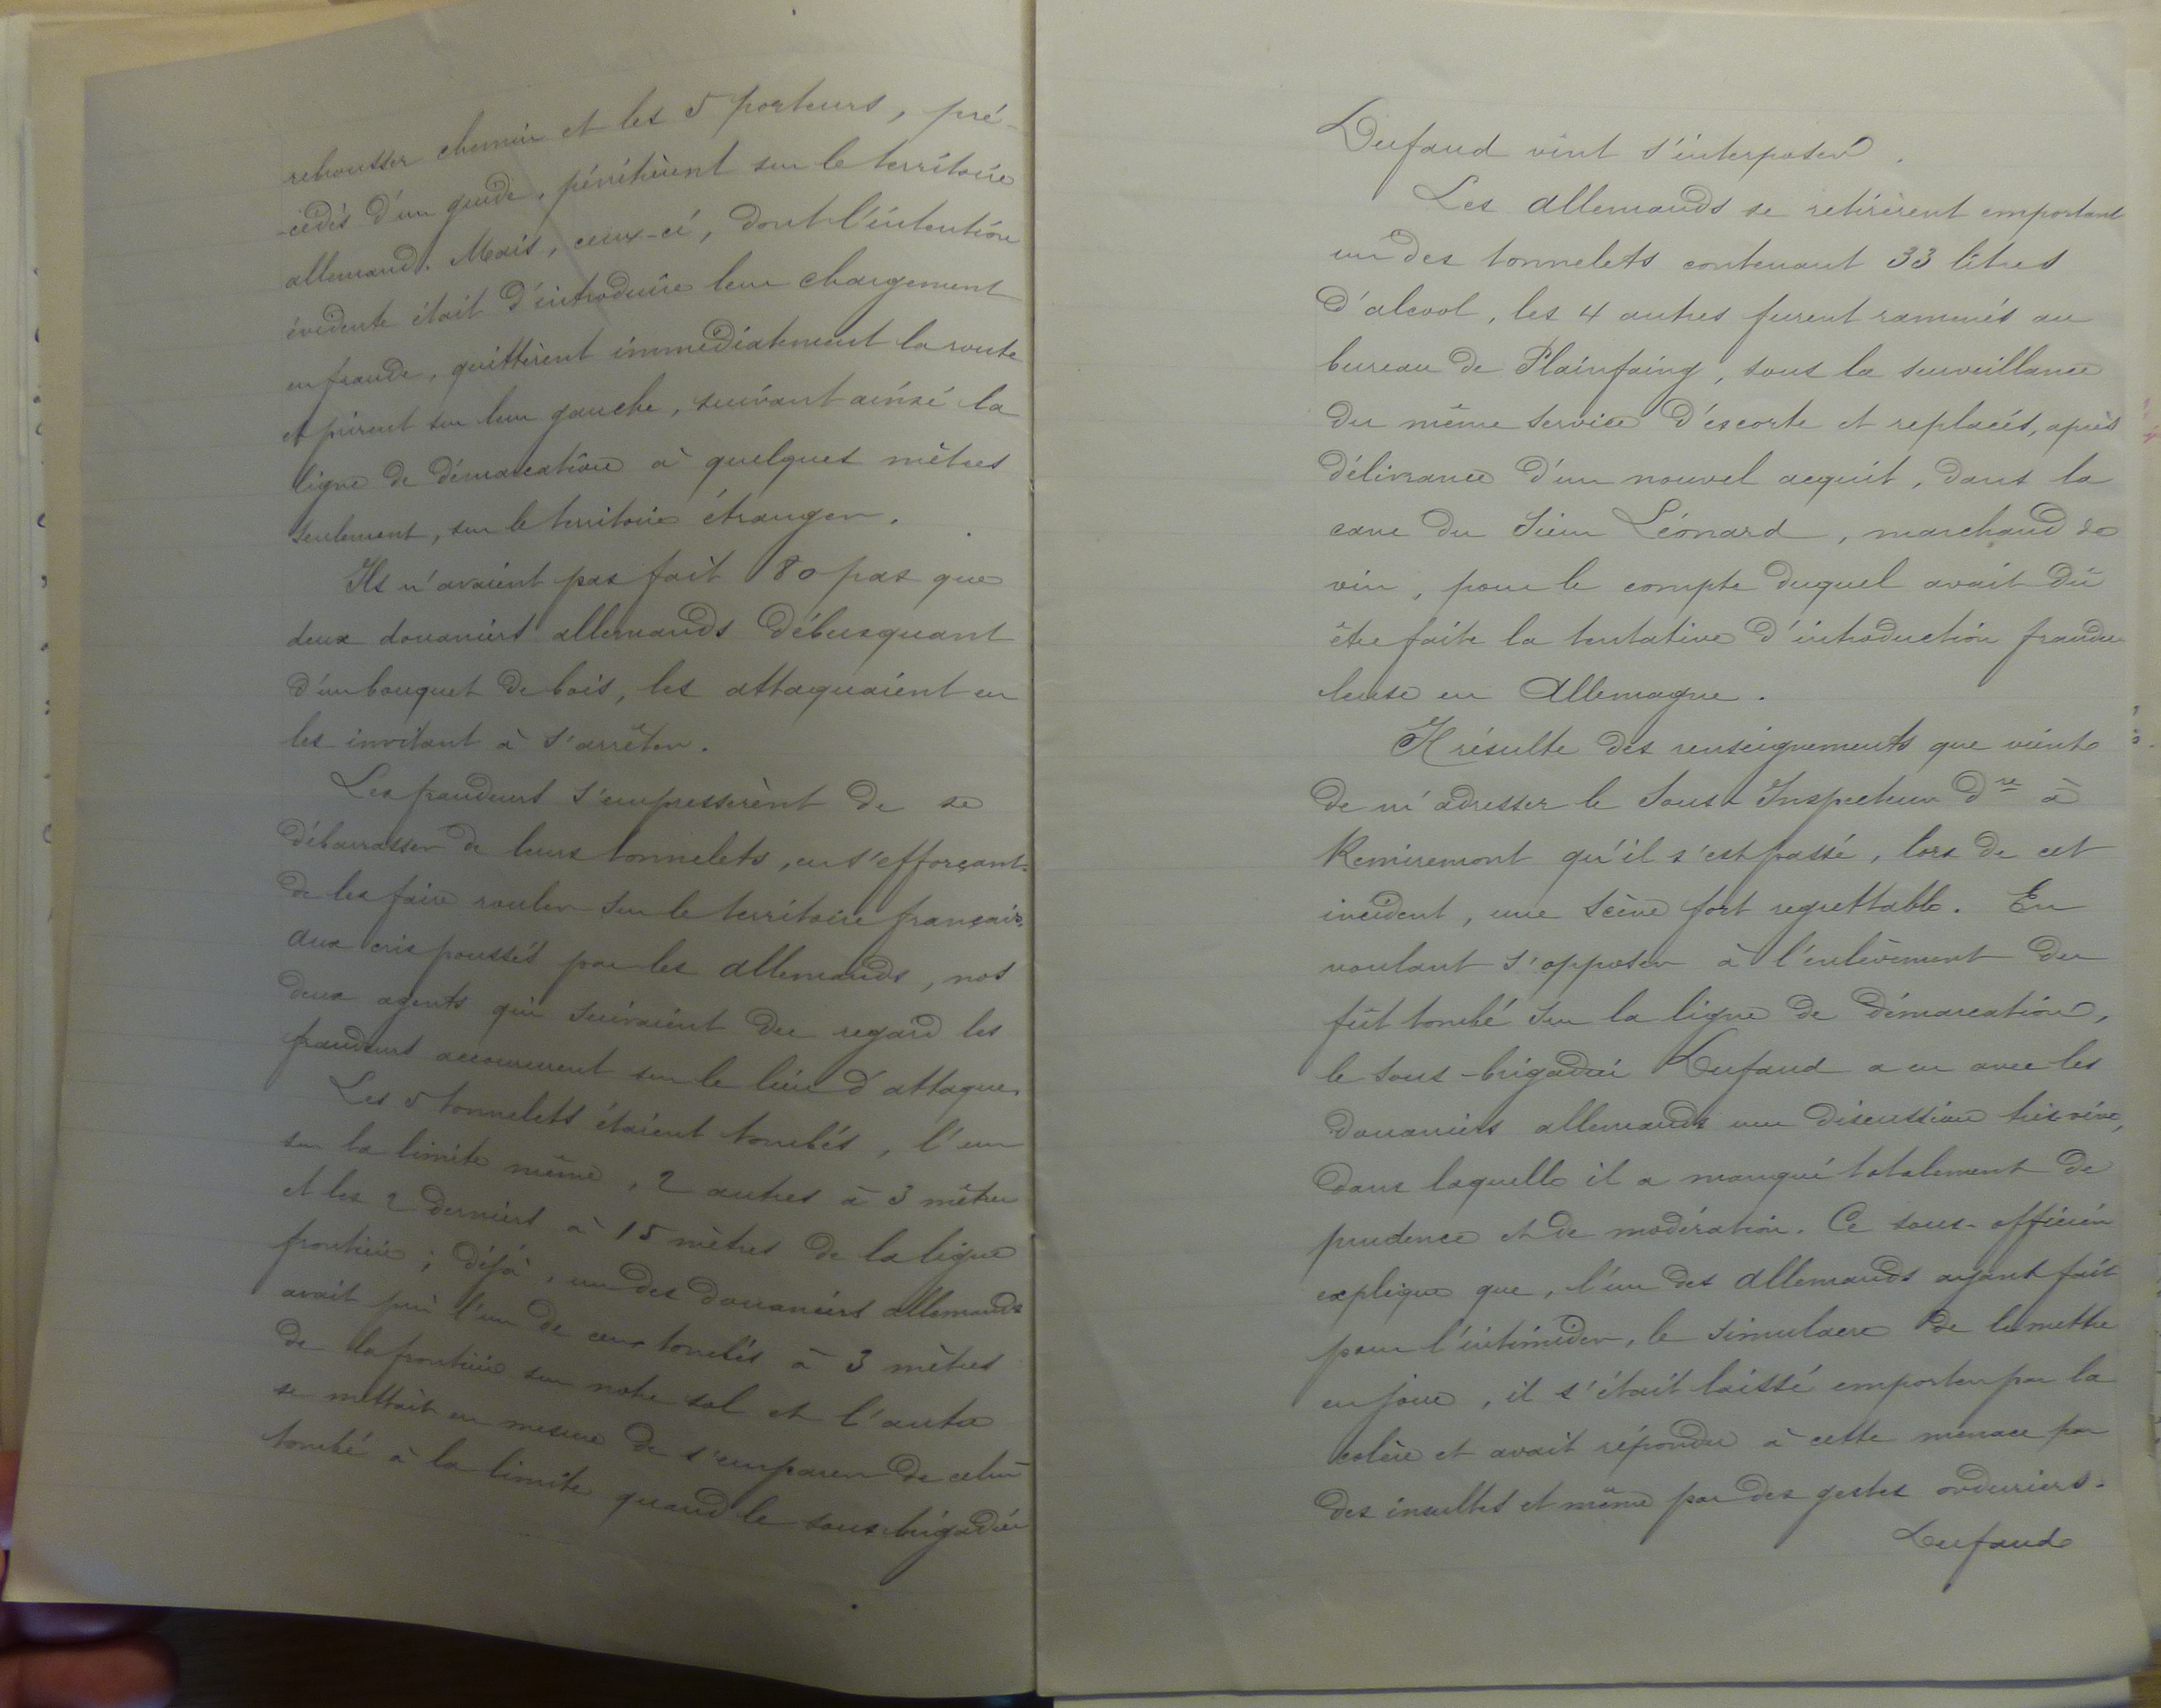 rebrousser chemin et les 5 porteurs, pré-
-cédés d'un guide, pénétrèrent sur le territoire
allemand. Mais, ceux-ci, dont l'intention
évidente était d'introduire leur chargement
en fraude, quittèrent immédiatement la route
et prirent sur leur gauche, suivant ainsi la
ligne de démarcation à quelques mètres
seulement, sur le territoire étranger.
Ils n'avaient pas fait 80 pas que
deux douaniers allemands débusquant
d'un bouquet de bois, les attaquaient en
les invitant à s'arrêter.
Les fraudeurs s'empressèrent de se
débarrasser de leurs tonnelets, en s'efforçant
de les faire rouler sur le territoire français.
Aux cris poussés par les allemands, nos
deux agents qui suivaient du regard les
fraudeurs accoururent sur le lieu d'attaque.
Les 5 tonnelets étaient tombés, l'un
sur la limite même, 2 autres à 3 mètres
et les 2 derniers à 15 mètres de la ligne
frontière ; déjà, un des douaniers allemands
avait pris l'un de ceux tombés à 3 mètres
de la frontière sur notre sol et l'autre
se mettait en mesure de s'emparer de celui
tombé à la limite quand le sous brigadier
Dufaud vint s'interposer.
Les allemands se retirèrent emportant
un des tonnelets contenant 33 litres
d'alcool, les 4 autres furent ramenés au
bureau de Plainfaing, sous la surveillance
du même service d'escorte et replacés, après
délivrance d'un nouvel acquit, dans la
cave du Sieur Léonard, marchand de
vin, pour le compte duquel avait dû
être faite la tentative d'introduction fraudu
leuse en Allemagne.
Il résulte des renseignements que vient
de m'adresser le Sous Inspecteur dre à
Remiremont qu'il s'est passé, lors de cet
incident, une scène fort regrettable. En
voulant s'opposer à l'enlèvement du
fût tombé sur la ligne de démarcation,
le sous-brigadier Dufaud a eu avec les
douaniers allemands une discussion très vive,
dans laquelle il a manqué totalement de
prudence et de modération. Ce sous-officier
explique que, l'un des allemands ayant fait
pour l'intimider, le simulacre de le mettre
en joue, il s'était laissé emporter par la
colère et avait répondu à cette menace par
des insultes et même par des gestes orduriers.
Dufaud